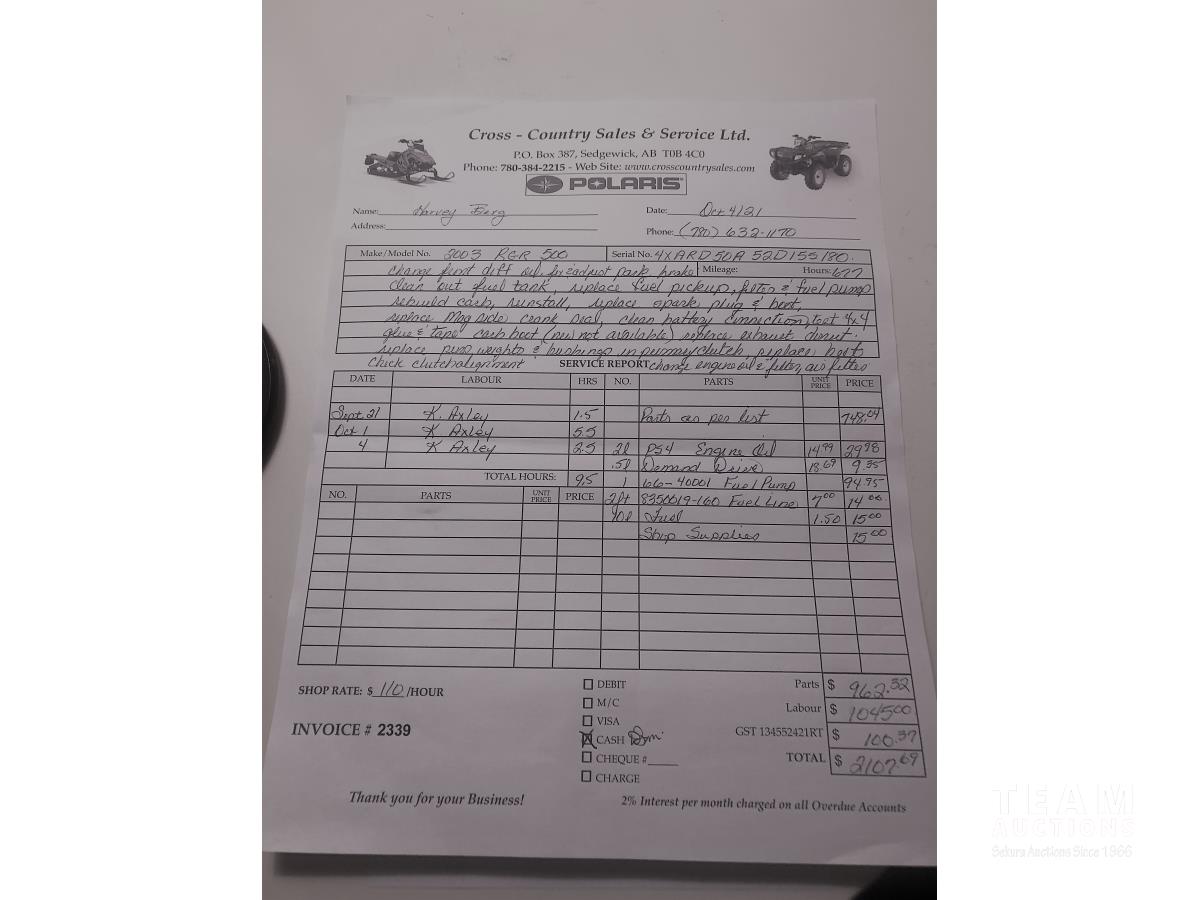 Cross - Country Sales & Service Ltd.
P.O. Box 387, Sedgewick, AB T0B 4C0
Phone: 780-384-2215 - Web Site: www.crosscountrysales.com
POLARIS
Name: Harvey Berg Date: Oct 4/21
Address: Phone: (780) 632-1170
Make/Model No. 2003 RGR 500 Serial No. 4XARD50A 52D155180.
change front diff oil, adjust park brake Mileage: Hours: 677
clean out fuel tank, replace fuel pickup, filter & fuel pump
rebuild carb, reinstall, replace spark plug & boot,
replace Mag side crank seal, clean battery connection, test 4x4
glue & tape carb boot (new not available) replace exhaust donut.
replace pins, weights & bushings in primary clutch, replace belt
check clutch alignment SERVICE REPORT change engine oil & filter, air filter
DATE LABOUR HRS NO. PARTS UNIT PRICE PRICE
Sept 21 K. Axley 1.5 Parts as per list 748.04
Oct 1 K Axley 5.5
4 K Axley 2.5 2l PS4 Engine Oil 14.99 29.98
.5l Demand Drive 18.69 9.35
TOTAL HOURS: 9.5 1 66-40001 Fuel Pump 94.95
NO. PARTS UNIT PRICE PRICE 2ft 8350019-160 Fuel Line 7.00 14.00
10l Fuel 1.50 15.00
Shop Supplies 15.00
SHOP RATE: $ 110 /HOUR
INVOICE # 2339
DEBIT
M/C
VISA
CASH
CHEQUE #
CHARGE
Parts $ 962.32
Labour $ 1045.00
GST 134552421RT $ 100.37
TOTAL $ 2107.69
Thank you for your Business!
2% Interest per month charged on all Overdue Accounts
TEAM
AUCTIONS
Sekura Auctions Since 1966